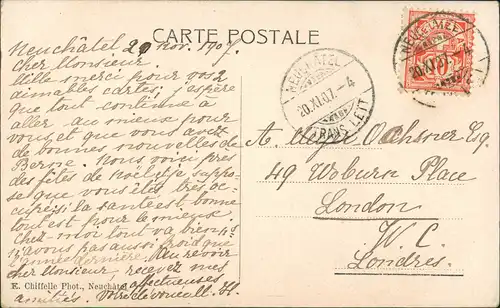 CARTE POSTALE
Neuchâtel 20 nov. 1907.
Cher Monsieur.
Mille merci pour vos 2
aimables cartes; j'espère
que tout continue à
aller au mieux pour
vous et que vous avez
de bonnes nouvelles de
Berne. Nous voici près
des fêtes de noël et je suppo-
se que vous êtes très oc-
cupé; si la santé est bonne
tout est pour le mieux.
Chez moi tout va bien et
n'avons pas aussi froid que
l'année dernière. Au revoir
cher Monsieur, recevez mes
affectueuses
amitiés. Votre
E. Chiffelle Phot., Neuchâtel
NEUCHATEL
20.XI.07.-4
TRANS. LETT.
NEUCHATEL
20.XI.07.-4
10
A. Meyer Ochsner Esq.
49 Woburn Place
London
W. C.
Londres.